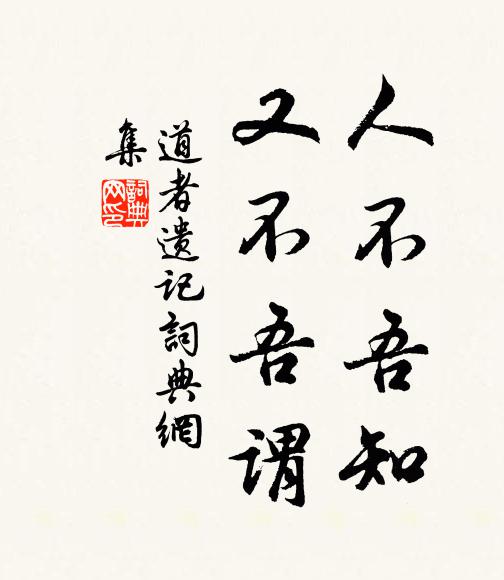 人不吾知
又不吾谓
道者遗记詞典網
集
詞典网印